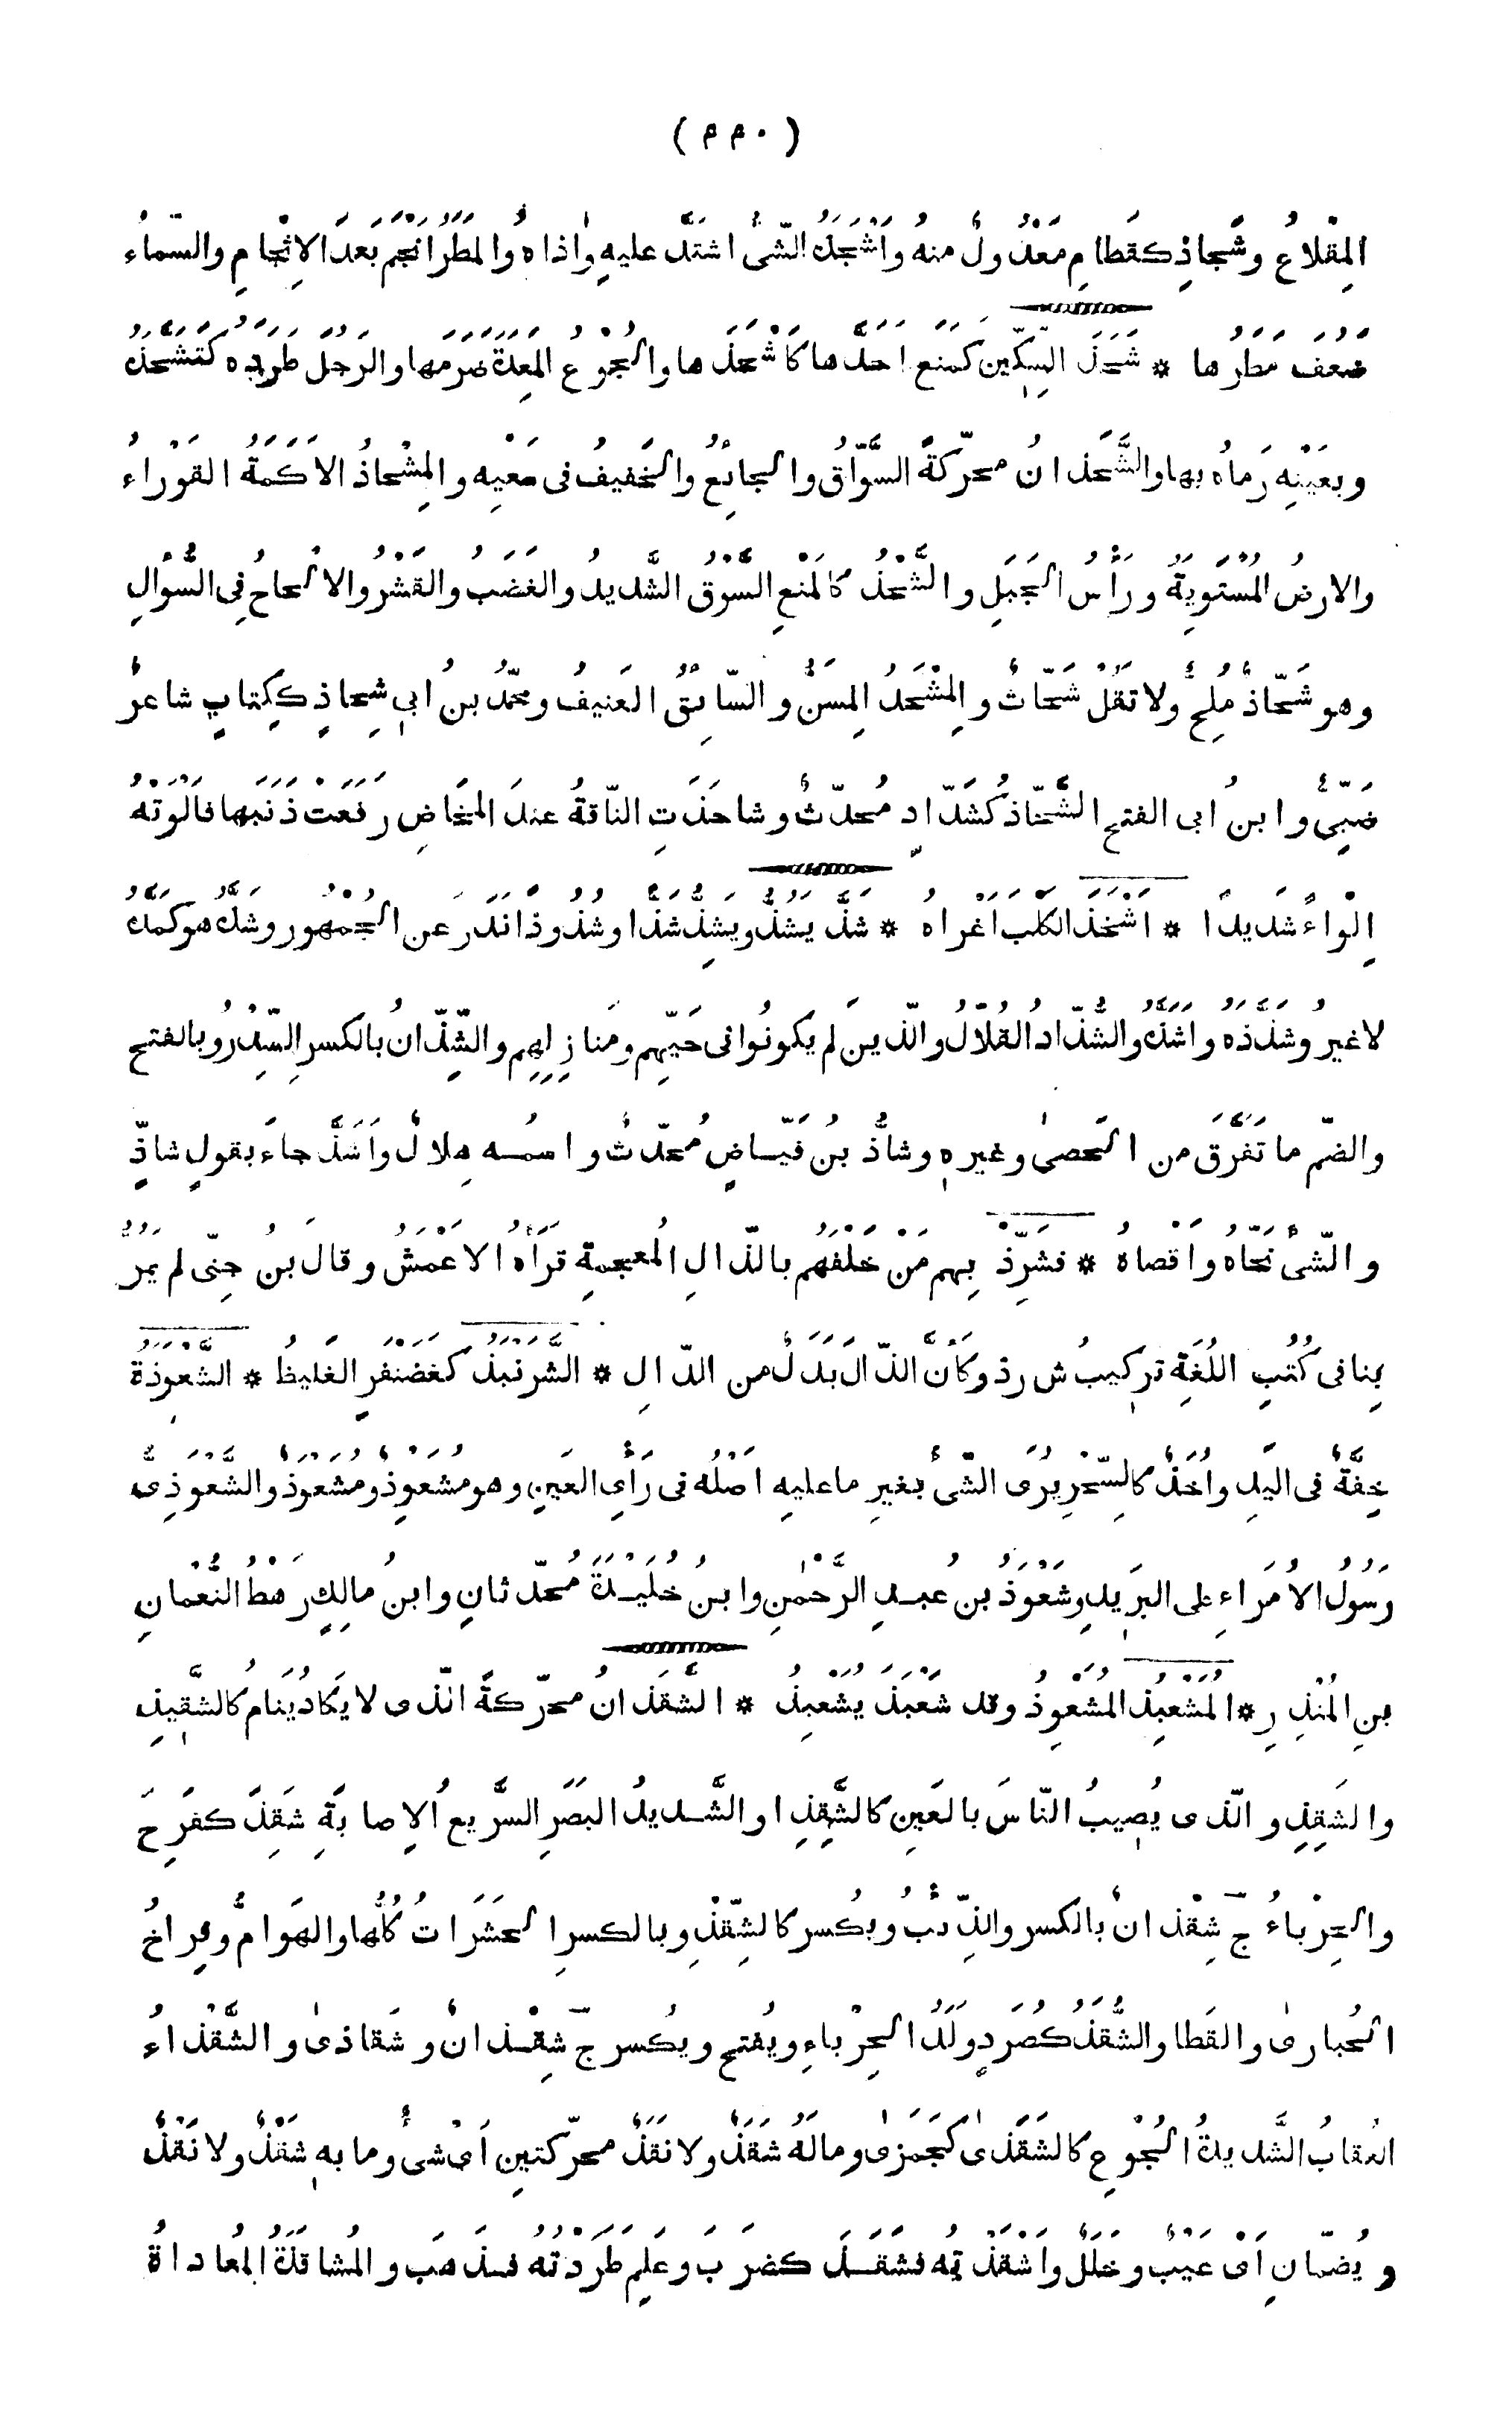 ( ٤٤٠ )
المِقْلاعُ وشَجاذِ كقَطامِ مَعْدُولٌ منهُ وَاَشْجَذَ الشّىءُ اشتدّ عليهِ وٰاذاهُ والمَطَرُ اَنْجَمَ بَعْدَ الاِثْجامِ والسّماءُ
ضَعُفَ مَطَرُها * شَحَذَ السِّكِّينَ كمَنَعَ احدَّها كَاَشْحَذَها والجُوْعُ المَعِدَةَ ضَرَمَها والرَجُلَ طَرَدَه كتَشَحَّذَهُ
وبعَيْنِه رَماهُ بها والشَّحَذانُ محرّكةً السَّوّاقُ والجائعُ والخَفيفُ فى سَعْيِه والمِشْحاذُ الاَكَمَةُ القَوْراءُ
والارضُ المُسْتَوِيَةُ ورَأْسُ الجَبَلِ والشَّحْذُ كالمَنْعِ السَّوْقُ الشَّديدُ والغَضَبُ والقَشْرُ والاِلْحاحُ فِى السُّؤالِ
وهو شَحّاذٌ مُلِحٌّ ولا تَقُلْ شَحّاثٌ والمِشْحَذُ المِسَنُّ والسّائقُ العَنيفُ ومحمّدُ بنُ اَبى شِحاذٍ ككِتابٍ شاعرٌ
ضَبّىٌّ وابنُ اَبى الفتحِ الشَّحّاذُ كشَدّادٍ مُحدّثٌ وشاحَذَتِ النّاقةُ عندَ المَخَاضِ رَفَعَتْ ذَنَبَها فاَلْوَتْهُ
اِلْواءً شديدًا * اَشْخَذَ الكَلْبَ اَغْراهُ * شَذَّ يَشُذُّ ويَشِذُّ شَذًّا وشُذُوذًا نَدَرَ عن الجُمْهُورِ وشَذَّهُ هو كمَدَّهُ
لا غيرُ وشَذَّذَه واَشَذَّهُ والشُّذّاذُ القُلّالُ والّذينَ لم يكونُوا فى حَيّهِم ومَنازِلِهِم والشِّذّانُ بالكسرِ السِّدْرُ وبالفتحِ
والضّم ما تَفَرَّقَ من الحَصىٰ وغيرِهِ وشاذُّ بنُ فَيّاضٍ مُحدّثٌ واسمُه هِلالٌ واَشَذَّ جاءَ بقولٍ شاذٍّ
والشّىءَ نَحّاهُ واَقْصاهُ * فشَرِّذْ بِهِم مَنْ خَلْفَهُم بالذّالِ المُعجمةِ قرَأَهُ الاَعْمَشُ وقالَ بنُ جِنّى لم يَمُرَّ
بِنا فى كُتُبِ اللُغَةِ تركيبُ ش ر ذ وكَاَنَّ الذّالَ بَدَلٌ من الدّالِ * الشَّرَنْبَذُ كغَضَنْفَرٍ الغَليظُ * الشَّعْوَذَةُ
خِفَّةٌ فى اليَدِ واُخَذٌ كالسِّحْرِ يُرَى الشّىءُ بغيرِ ما عليهِ اَصْلُه فى رَأْىِ العَينِ وهو مُشَعْوِذٌ ومُشَعْوَذٌ والشَّعْوَذِىُّ
رَسُولُ الاُمَراءِ على البَريدِ وشَعْوَذُ بنُ عبدِ الرَّحْمٰنِ وابنُ خُلَيْدَةَ محدّثانِ وابنُ مالِكٍ رَهْطُ النُّعْمانِ
بنِ المُنْذِرِ * المُشَعْبِذُ المُشَعْوِذُ وقد شَعْبَذَ يُشَعْبِذُ * الشَّقَذانُ محرّكةً الّذى لا يَكادُ يَنامُ كالشَّقيذِ
والشَقِذِ والّذى يُصيبُ النّاسَ بالعَينِ كالشَّقِذِ او الشَّديدُ البَصَرِ السَّريعُ الاِصابَةِ شَقِذَ كفَرِحَ
والحِرْباءُ ج شِقْذانٌ بالكسرِ والذِّئْبُ ويُكسر كالشِّقْذِ وبالكسرِ الحَشَراتُ كُلُّها والهَوامُّ وفِراخُ
الحُبارىٰ والقَطا والشُّقَذُ كصُرَدٍ ولَدُ الحِرْباءِ ويُفتح ويُكسر ج شِقْذانٌ وشَقاذىٰ والشَّقْذاءُ
العُقابُ الشَّديدةُ الجُوعِ كالشَقَذىٰ كجَمَزىٰ وما لَهُ شَقَذٌ ولا نَقَذٌ محرّكتين اَىْ شىءٌ وما بهِ شَقْذٌ ولا نَقْذٌ
ويُضمّانِ اَىْ عَيْبٌ وخَلَلٌ واَشْقَذْتُه فشَقَذَ كضرَبَ وعَلِمَ طَرَدْتُه فذهَبَ والمُشاقَذَةُ المُعاداةُ